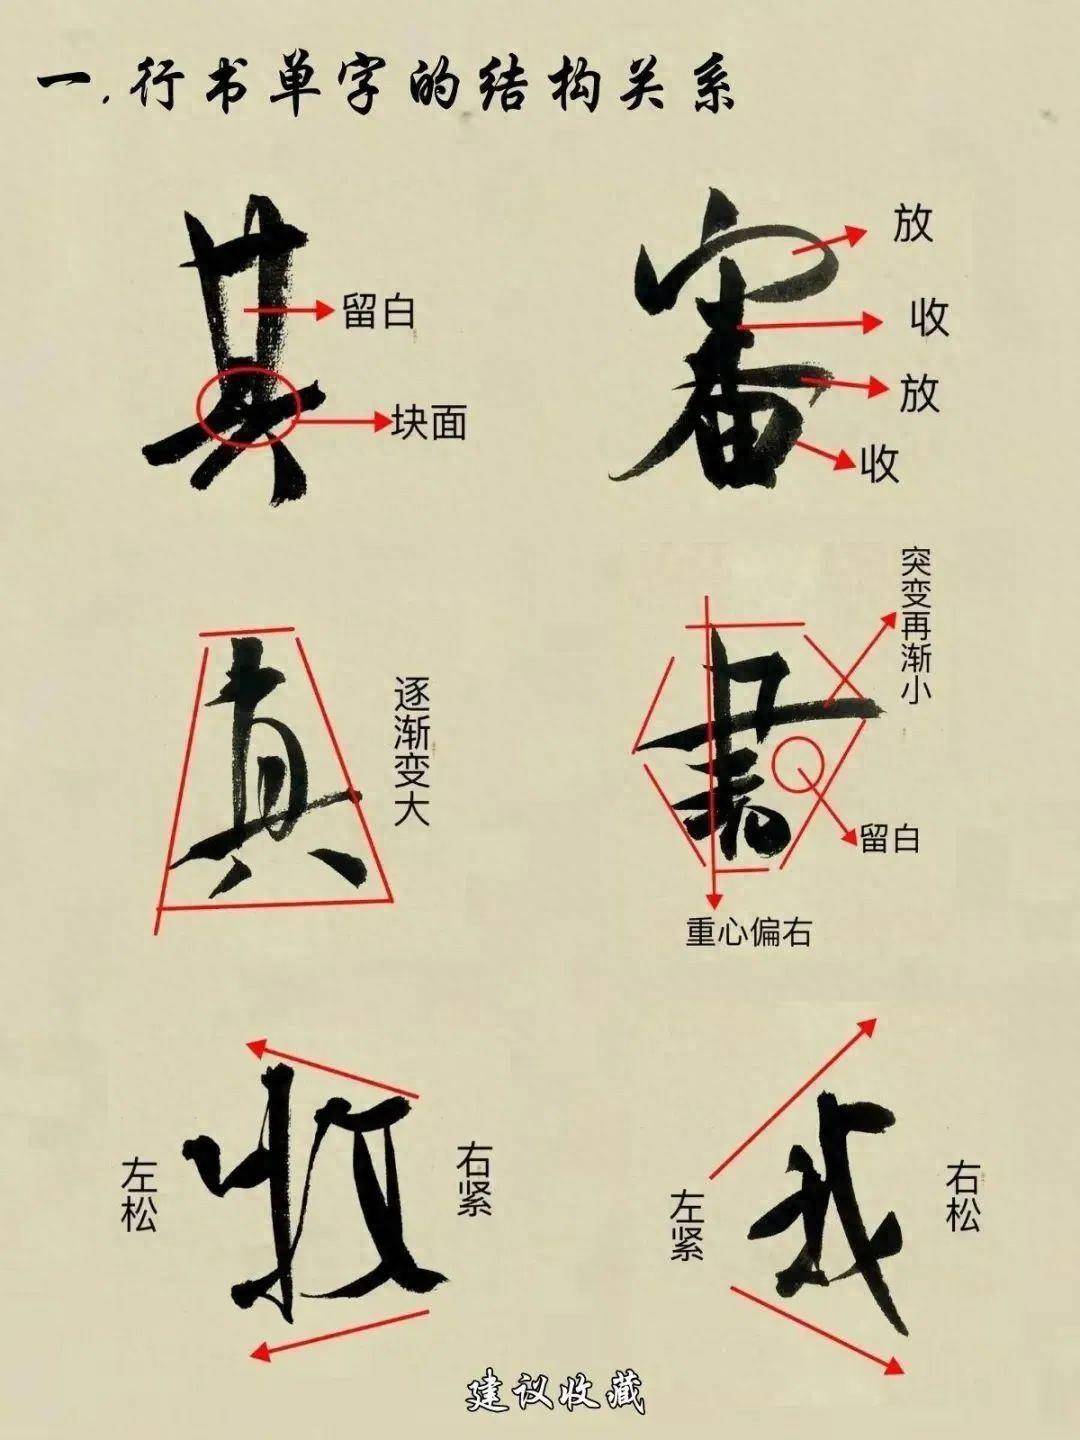 一.行书单字的结构关系
其
留白
块面
審
放
收
放
收
真
逐渐变大
書
突变再渐小
留白
重心偏右
左松
收
右紧
左紧
我
右松
建议收藏